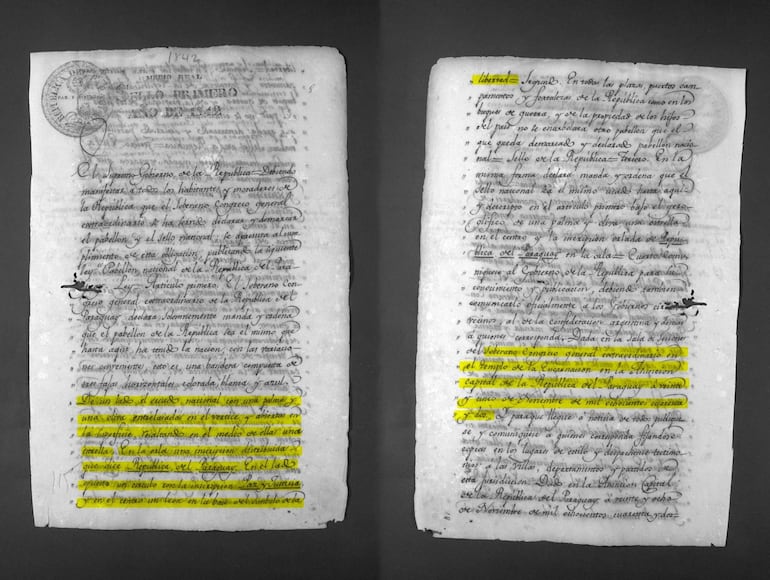 1842
MEDIO REAL
SELLO PRIMERO
AÑO DE 1842
El Supremo Gobierno de la Republica = Debiendo
manifestar á todos los habitantes y moradores de
la Republica que el Soberano Congreso general
extraordinario se ha servido declarar y demarcar
el pabellon y el sello nacional; se ejecuta al cum
plimiento de esta obligacion, publicando la siguiente
Ley = Pabellon nacional de la Republica del Para-
Ley = Articulo primero. El Soberano Con-
greso general extraordinario de la Republica del
Paraguay declara solemnemente manda y ordena
que el pabellon de la Republica sea el mismo que
hasta aqui ha tenido la nacion con las variacio
nes esto es una bandera compuesta de
tres fajas horizontales colorada, blanca y azul.
De un lado el escudo nacional con una palma y
una oliva entrelazadas en el vertice y abiertas en
la superficie, resaltando en el medio de ellas una
estrella. En la orla una incripcion distribuida
que dice Republica del Paraguay. En el lado
opuesto un circulo con la inscripcion Paz y Justicia
y en el centro un leon en la base del simbolo de la
libertad = Segundo. En todas las plazas, puertos cam
pamentos y fronteras de la Republica como en los
buques de guerra, y de la propiedad de los hijos
del pais no se enarbolara otro pabellon que el
que queda demarcado y declarado pabellon nacio
nal = Sello de la Republica = Tercero. En la
misma forma declara manda y ordena que el
Sello nacional sea el mismo usado hasta aqui
y descripto en el articulo primero bajo el gero
glifico de una palma y oliva una estrella
en el centro y la incripcion orlada de Repu
blica del Paraguay en la orla = Cuarto Comu
niquese al Gobierno de la Republica para su
conocimiento y publicacion, debiendo tambien
comunicarlo oficialmente a los Gobiernos cir
cvecinos al de la confederacion argentina y demas
á quienes corresponda. Dada en la Sala de Sesiones
del Soberano Congreso general extraordinario en
el templo de la Encarnacion en la Asuncion
capital de la Republica del Paraguay á veinte
y cinco de Noviembre de mil ochocientos cuarenta
y dos. Y para que llegue á noticia de todos publique
se y comuniquese á quienes corresponda fijandose
copias en los lugares de estilo y
á las Villas, departamentos y partidos de
esta jurisdiccion. Dado en la Asuncion Capital
de la Republica del Paraguay á veinte y ocho
de Noviembre de mil ochocientos cuarenta y dos=